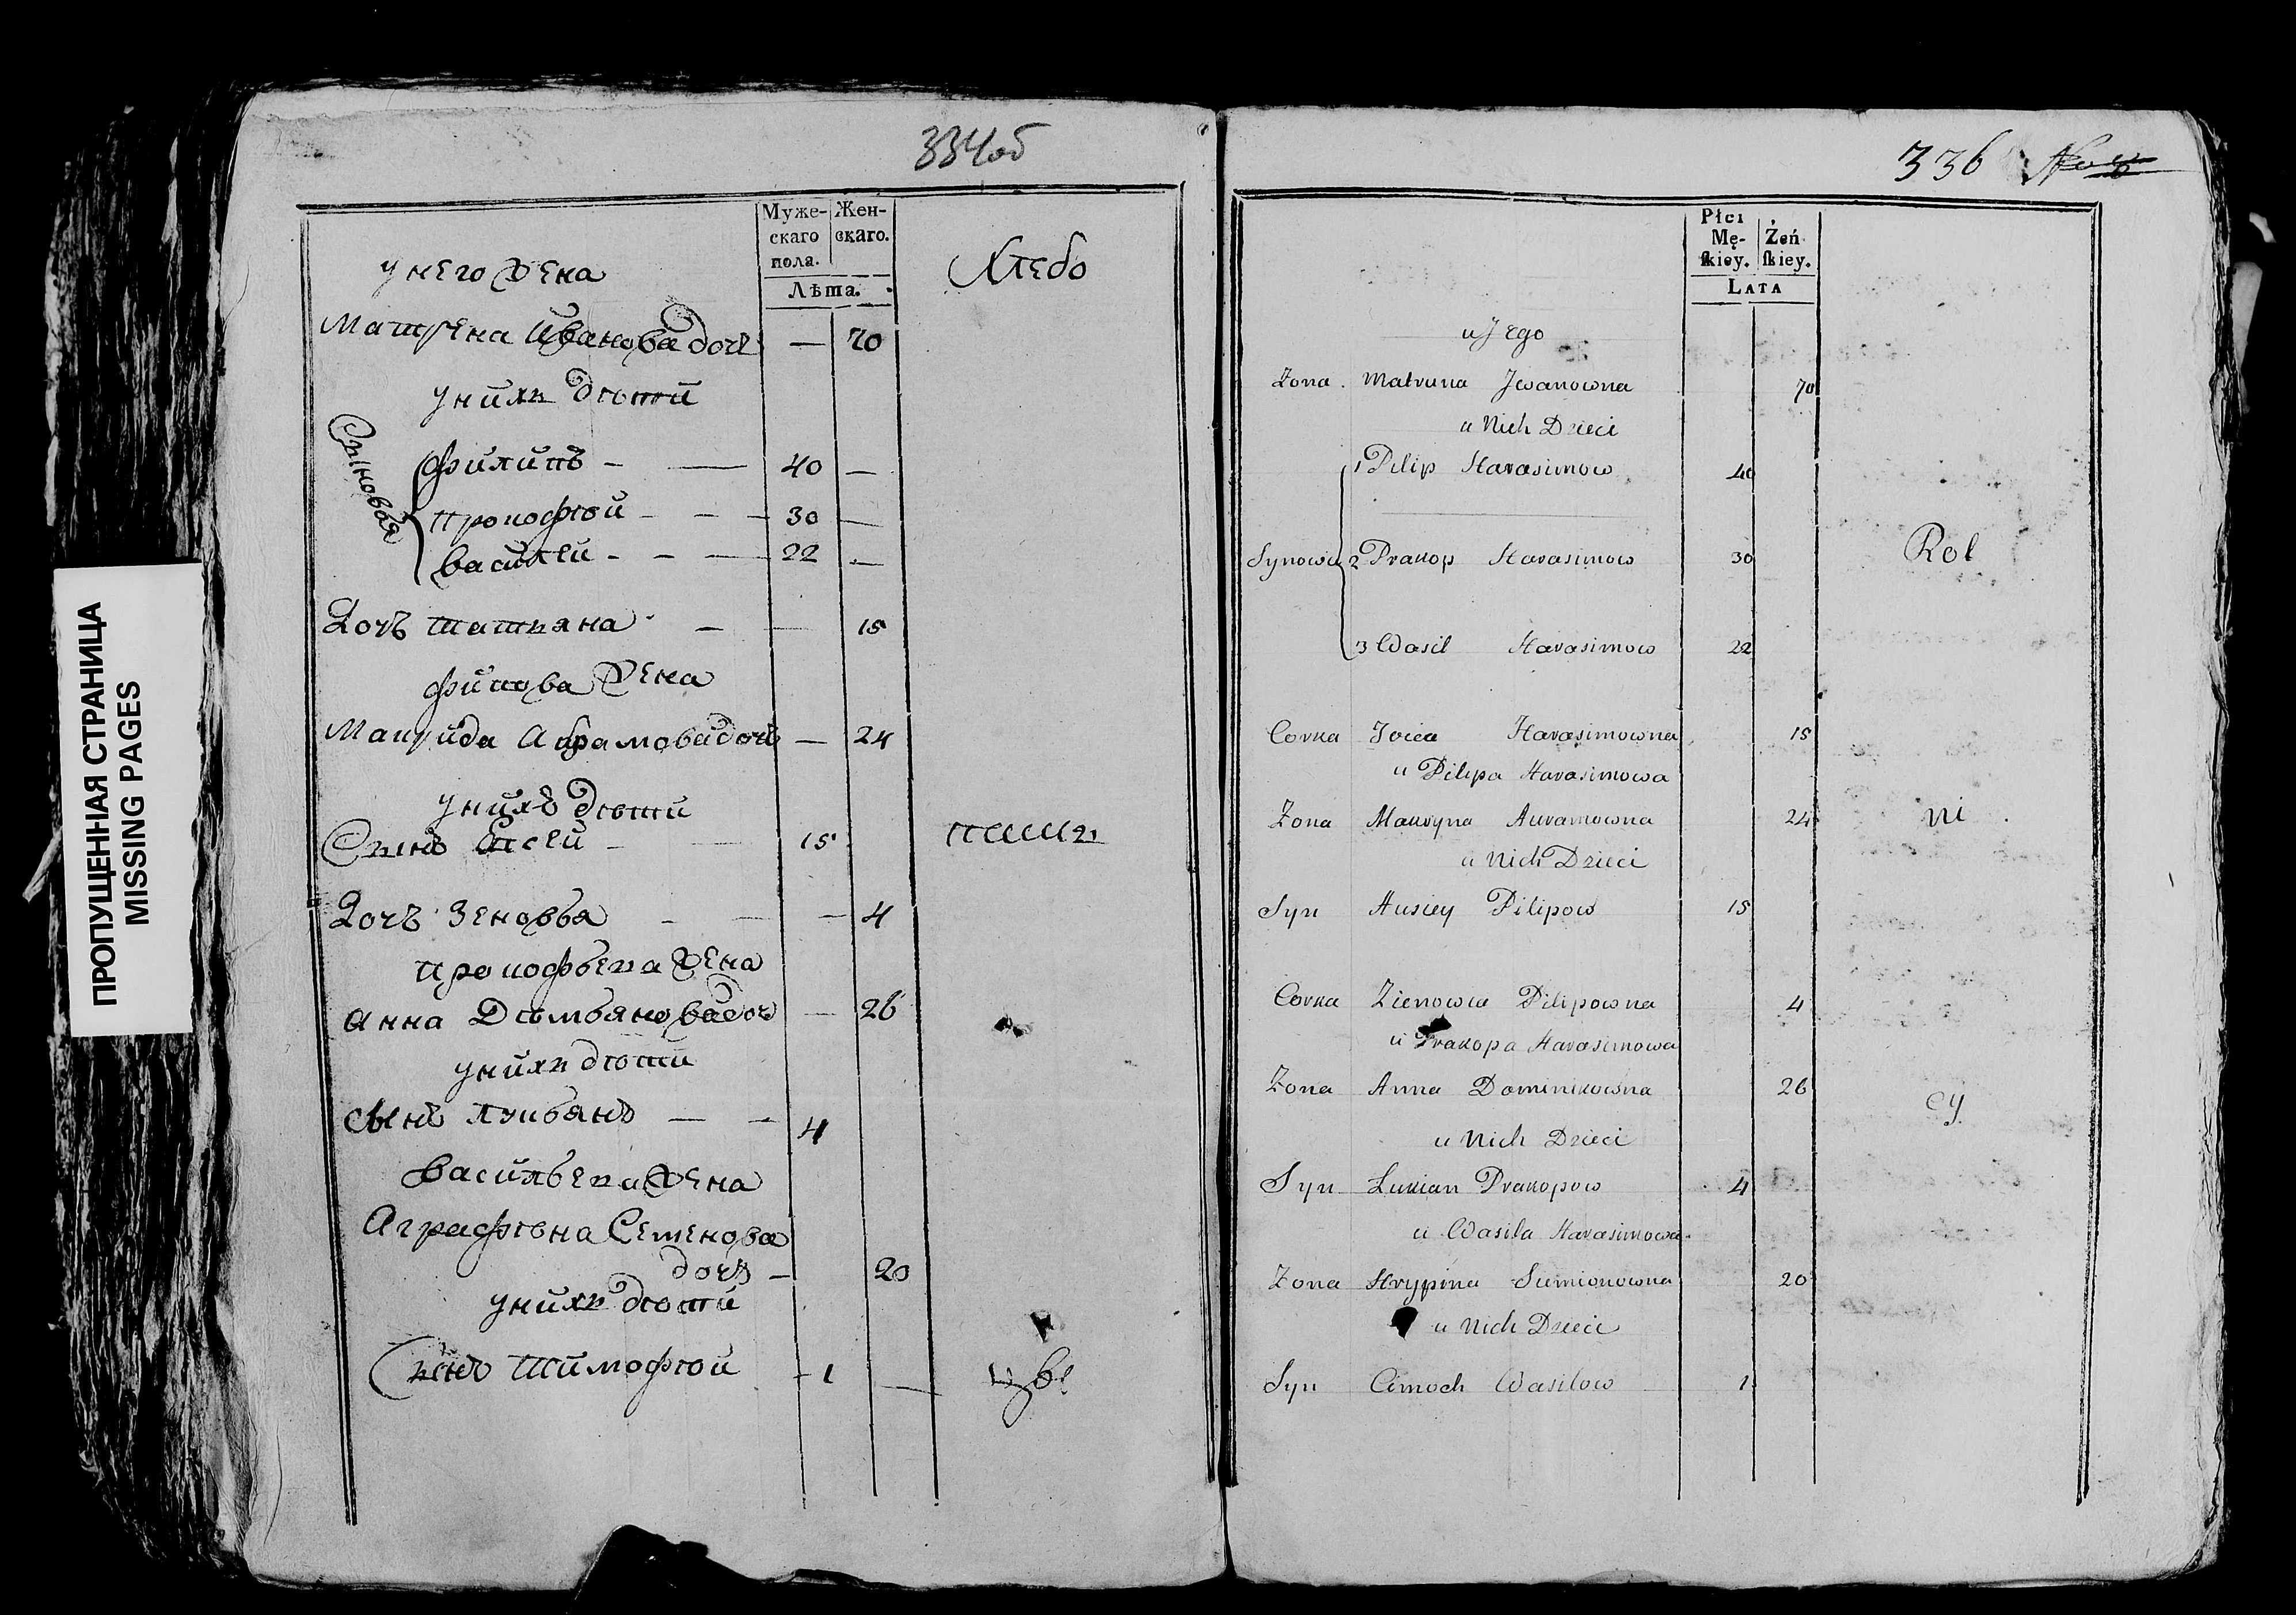 ПРОПУЩЕННАЯ СТРАНИЦА
MISSING PAGES
334об
Муже-
скаго
пола.
Жен-
скаго.
Лѣта.
Хлебо
у него жена
Матрена Иванова дочь — 70
у нихъ дѣти
Сыновья
Филипъ — 40 —
Прокофѣй — 30 —
Василеи — 22 —
Дочь Татьяна — 15
жена
Макрида Абрамова дочь — 24
у нихъ дѣти
Сынъ 15
Дочь Зеновья — 4
Прокофьева жена
Анна Дѣмьянова дочь — 26
у нихъ дѣти
сынъ Лукьянъ — 4
Васильева жена
Аграфѣна Семенова
дочь — 20
у нихъ дѣти
Сынъ Тимофѣй 1 —
336
Płci
Mę-
ſkiey.
Żeń
ſkiey.
LATA
u Jego
Zona Matruna Jwanowna 70
u Nich Dzieci
1 Pilip Harasimow 40
Synowie 2 Prakop Harasimow 30
3 Wasil Harasimow 22
Rol
Corka Harasimowna 15
u Pilipa Harasimowa
Zona Makryna Auramowna 24
ni
u Nich Dzieci
Syn Ausiey Pilipow 15
Corka Zienowia Pilipowna 4
u Prakopa Harasimowa
Zona Anna Dominikowna 26
cy
u Nich Dzieci
Syn Lukian Prakopow 4
u Wasila Harasimowa
Zona Hrypina Siemionowna 20
u Nich Dzieci
Syn Cimoch Wasilow 1